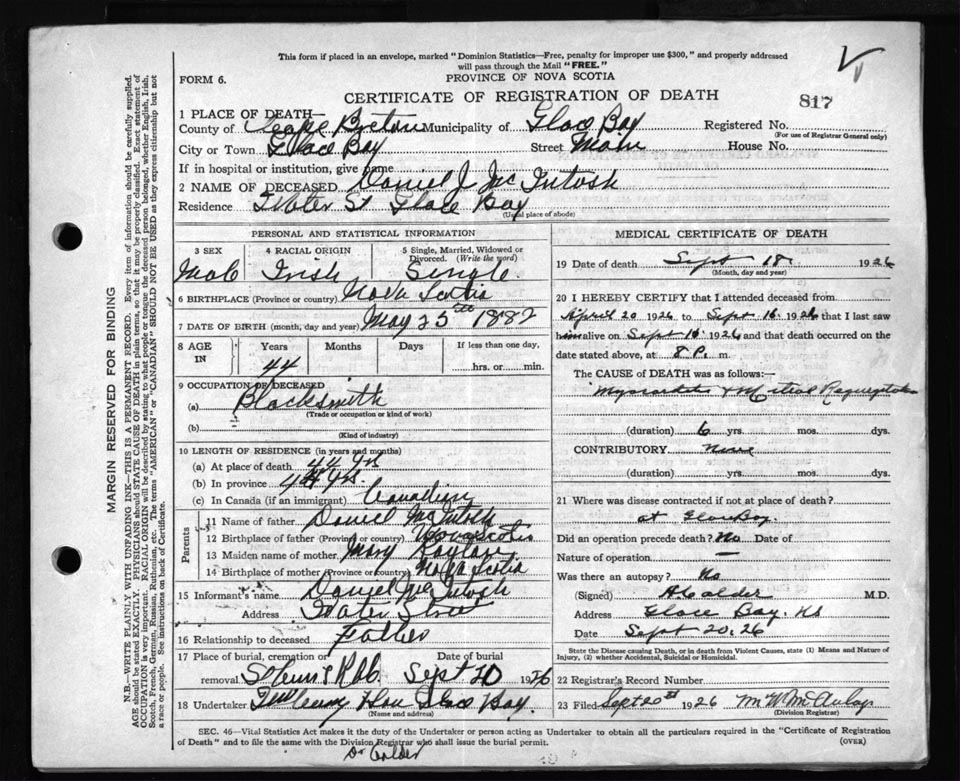 This form if placed in an envelope, marked "Dominion Statistics—Free, penalty for improper use $300," and properly addressed
will pass through the Mail "FREE."
FORM 6.
PROVINCE OF NOVA SCOTIA
CERTIFICATE OF REGISTRATION OF DEATH
817
1 PLACE OF DEATH—
County of Cape Breton Municipality of Glace Bay Registered No.
(For use of Registrar General only)
City or Town Glace Bay Street Main House No.
If in hospital or institution, give name
2 NAME OF DECEASED Daniel J McIntosh
Residence Water St Glace Bay
(Usual place of abode)
PERSONAL AND STATISTICAL INFORMATION
3 SEX
Male
4 RACIAL ORIGIN
Irish
5 Single, Married, Widowed or
Divorced. (Write the word)
Single
6 BIRTHPLACE (Province or country) Nova Scotia
7 DATE OF BIRTH (month, day and year) May 25th 1882
8 AGE
IN
Years Months Days If less than one day,
44
hrs. or min.
9 OCCUPATION OF DECEASED
(a) Blacksmith
(Trade or occupation or kind of work)
(b)
(Kind of industry)
10 LENGTH OF RESIDENCE (in years and months)
(a) At place of death 44 yrs
(b) In province 44 yrs.
(c) In Canada (if an immigrant) Canadian
Parents
11 Name of father Daniel McIntosh
12 Birthplace of father (Province or country) Nova Scotia
13 Maiden name of mother Mary
14 Birthplace of mother (Province or country) Nova Scotia
15 Informant's name Daniel McIntosh
Address Water Street
16 Relationship to deceased Father
17 Place of burial, cremation or
removal
Date of burial
Sept 20 1926
18 Undertaker Glace Bay.
(Name and address)
MEDICAL CERTIFICATE OF DEATH
19 Date of death Sept 18 1926
(Month, day and year)
20 I HEREBY CERTIFY that I attended deceased from
April 20 1926 to Sept 16 1926 that I last saw
him alive on Sept 16 1926 and that death occurred on the
date stated above, at 8 P. m.
The CAUSE of DEATH was as follows:—
Myocarditis & Mitral Regurgitation
(duration) 6 yrs. mos. dys.
CONTRIBUTORY none
(duration) yrs. mos. dys.
21 Where was disease contracted if not at place of death?
at Glace Bay.
Did an operation precede death? No Date of
Nature of operation —
Was there an autopsy? No
(Signed) A Calder M.D.
Address Glace Bay. NS
Date Sept 20, 26
State the Disease causing Death, or in death from Violent Causes, state (1) Means and Nature of
Injury, (2) whether Accidental, Suicidal or Homicidal.
22 Registrar's Record Number
23 Filed Sept 20th 1926 M W McAulay
(Division Registrar)
SEC. 46—Vital Statistics Act makes it the duty of the Undertaker or person acting as Undertaker to obtain all the particulars required in the "Certificate of Registration
of Death" and to file the same with the Division Registrar who shall issue the burial permit.
(OVER)
Dr Calder
MARGIN RESERVED FOR BINDING
N.B.—WRITE PLAINLY WITH UNFADING INK—THIS IS A PERMANENT RECORD. Every item of information should be carefully supplied.
AGE should be stated EXACTLY. PHYSICIANS should STATE CAUSE OF DEATH in plain terms, so that it may be properly classified. Exact statement of
OCCUPATION is very important. RACIAL ORIGIN will be described by stating to what people or tongue the deceased person belonged, whether English, Irish,
Scotch, French, German, Russian, Ruthenian, etc. The terms "AMERICAN" or "CANADIAN" SHOULD NOT BE USED as they express citizenship but not
a race or people. See instructions on back of Certificate.